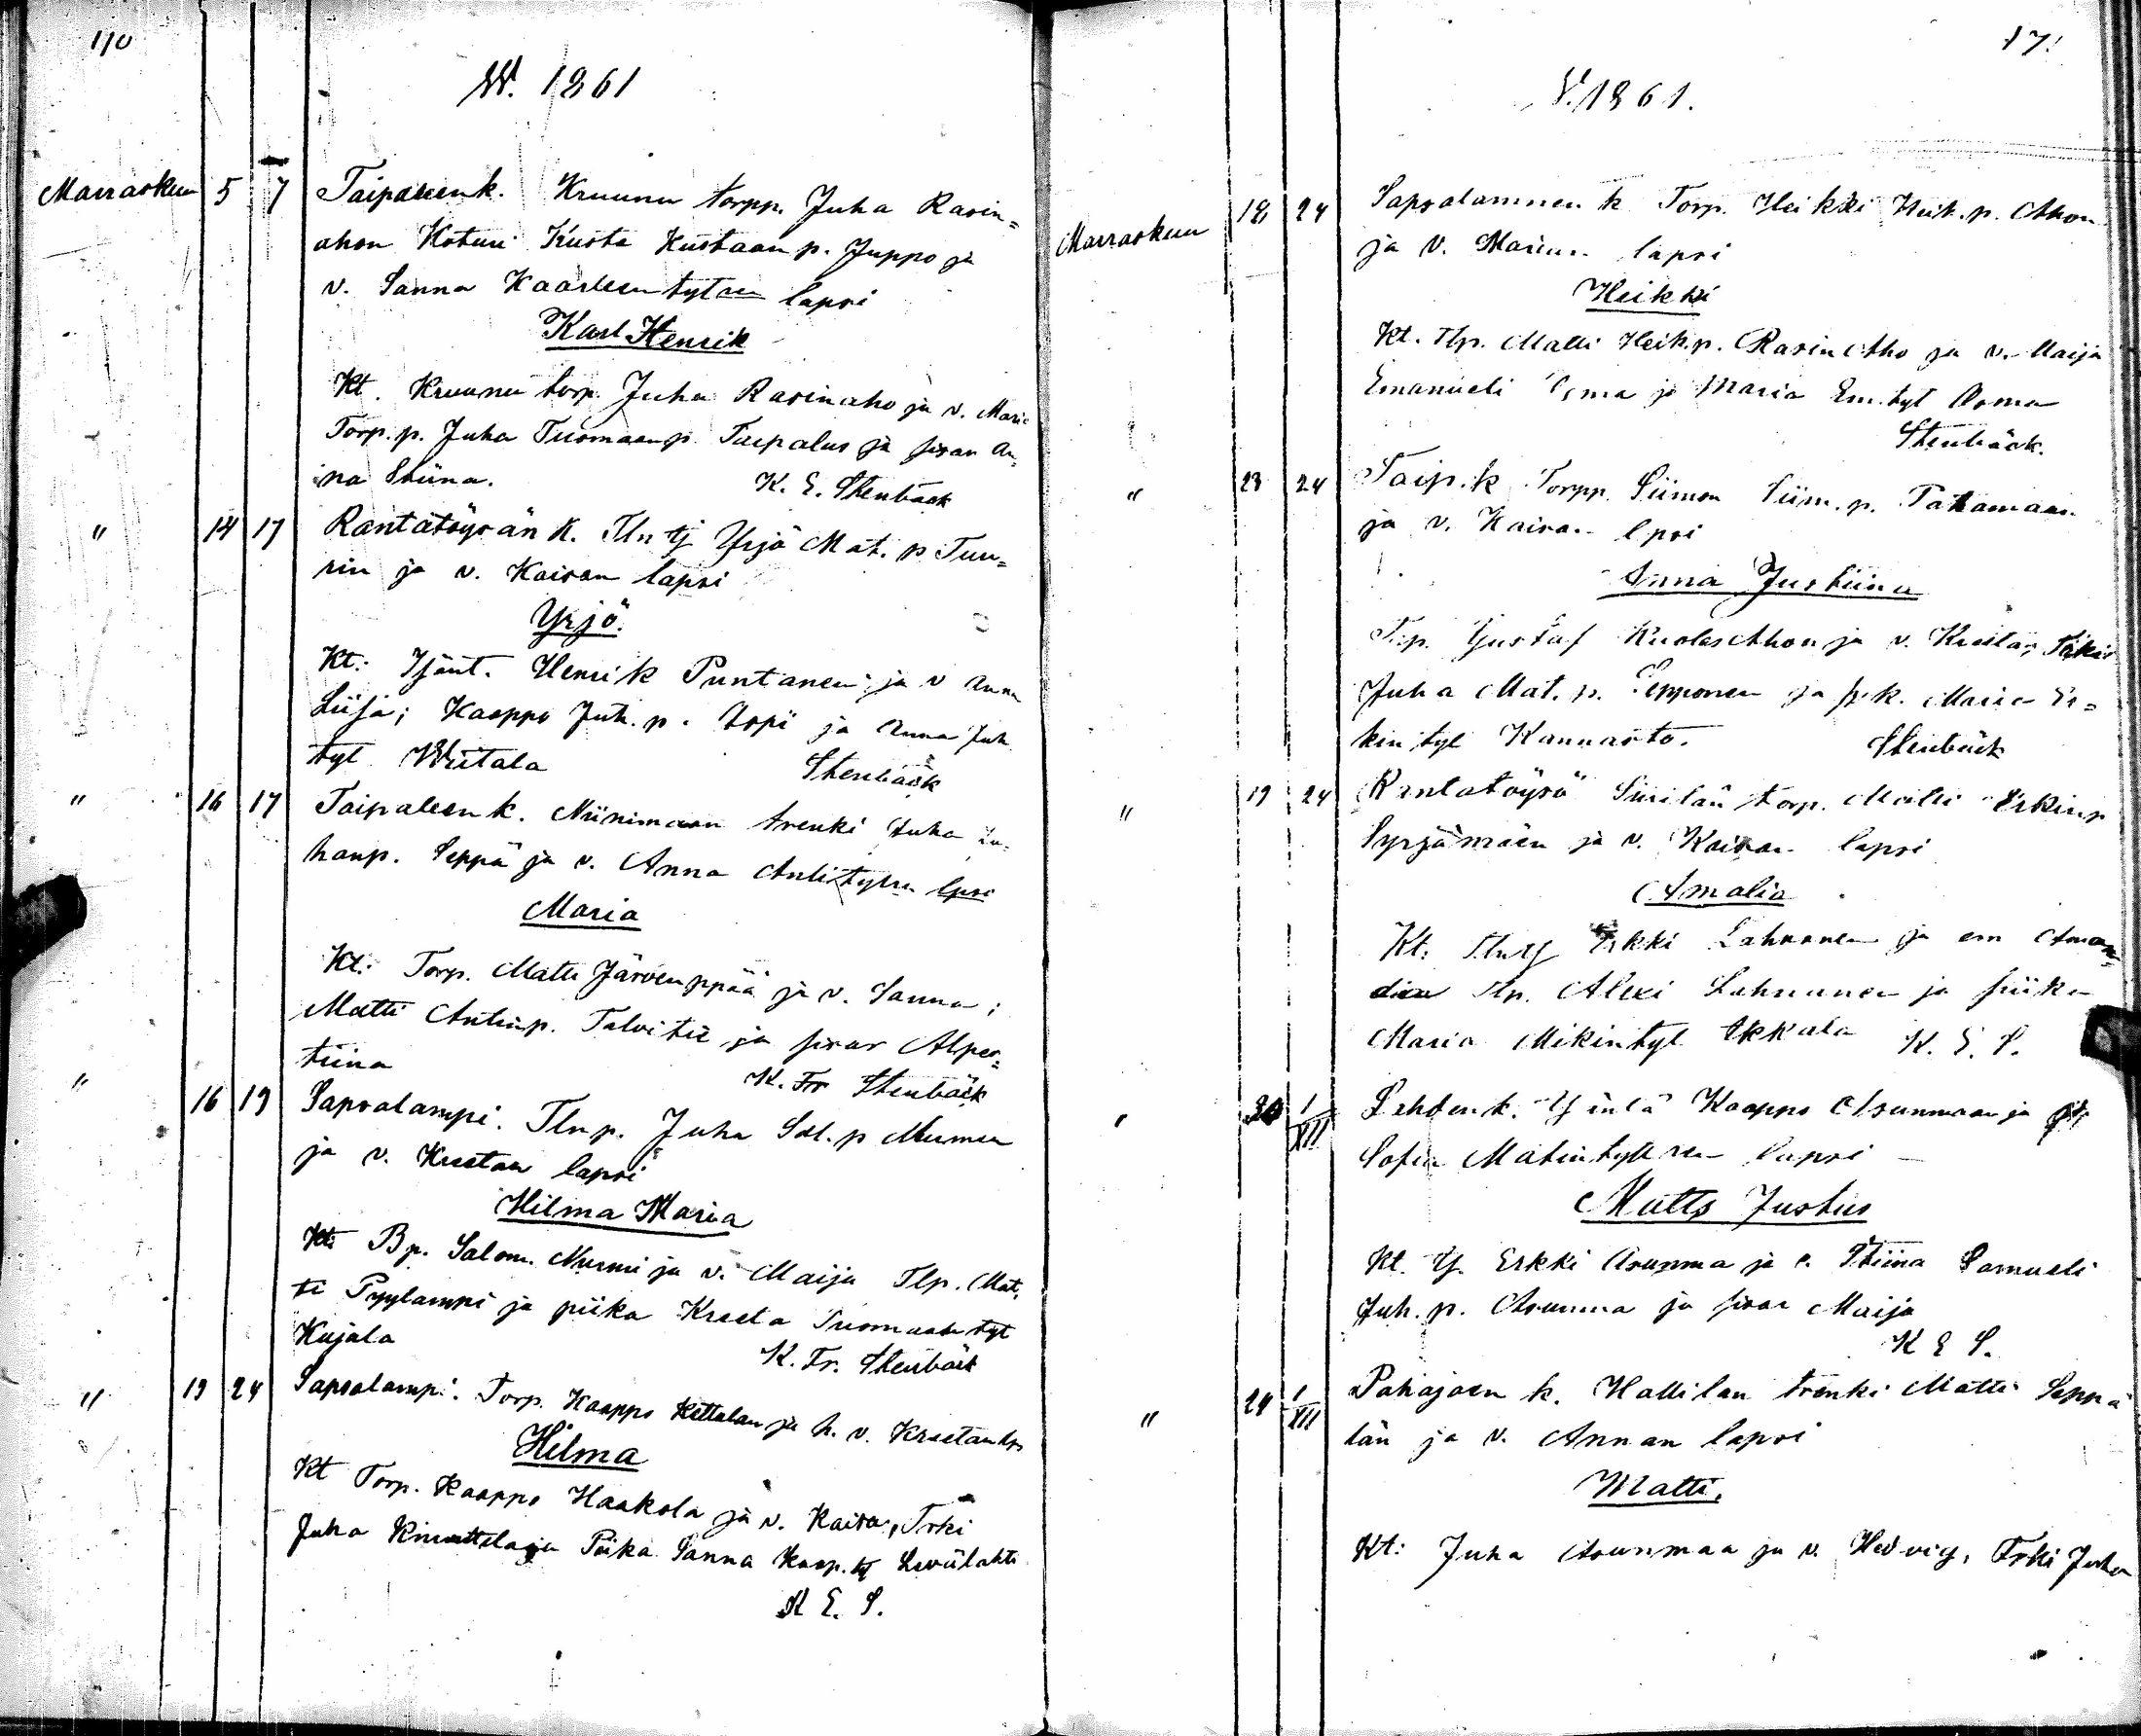 170
W. 1861
Marraskuu 5 7 Taipaleen k. Kruunu torpp. Juha Rasin=
ahon Koturi Kusta Kustaan p. Juppo ja
v. Sanna Kaarleentytren lapsi
Karl Henrik
Kt. Kruunu torp. Juha Rasinaho ja v. Maria
Torp. p. Juha Tuomaanp. Taipalus ja sisar An=
na Stiina. K. E. Stenbäck
" 14 17 Rantatöysän k. Tln tj Yrjö Mat. p Tuu=
rin ja v. Kaisan lapsi
Yrjö.
Kt: Isänt. Henrik Puntanen ja v Anna
Liisa; Kaappo Juh. p. ja Anna Juh.
tyt Wiitala Stenbäck
" 16 17 Taipaleen k. Niinimaan trenki Juha Ju=
hanp. Seppä ja v. Anna Antintytren lpsi
Maria
Kt: Torp. Matti Järvenppää ja v. Sanna;
Matti Antinp. Talvitie ja sisar Alper=
tiina K. Fr Stenbäck
" 16 19 Sapsalampi. Tlnp. Juha Sal. p Nurmen
ja v. Kreetan lapsi
Hilma Maria
Kt: Bp. Salom. Nurmi ja v. Maija Tlp. Mat=
ti Pyylampi ja piika Kreeta Tuomaantyt
Kujala K. Fr. Stenbäck
" 19 24 Sapsalampi. Torp. Kaappo Kettulan ja h. v. Kreetan lps
Hilma
Kt Torp. Kaappo Haakola ja v. Kaisa, Trki
Juha ja Piika Sanna Kaap. tyt
K E. S.
171
V. 1861.
Marraskuu 18 24 Sapsalammen k Torp. Heikki Heik. p. Ahon
ja V. Marian lapsi
Heikki
Kt. Tlp. Matti Heik.p. Rasin Aho ja v. Maija
Emanueli Osma ja Maria Em. tyt Osma
Stenbäck.
" 23 24 Taip. k Torpp. Siimon Siim. p. Patamaan
ja v. Kaisan lpsi
Anna Justiina
Tlp. Gustaf Ahon ja v. Kreeta,
Juha Mat. p. Lepponen ja Maria Er=
kin tyt Kannasto. Stenbäck
" 19 24 Rantatöysö Siirilän torp. Matti Erkin p
Syrjämäen ja v. Kaisan lapsi
Amalia
Kt: Tln tj Erkki Lahnanen ja em Aman=
dia Tlp. Alexi Lahnanen ja piika
Maria Mikintyt Ekkala K. E. S.
" 30 1/XII Lehden k. Kaappo Asunmaan ja
Sofia Matintyttren lapsi
Matts Justus
Kt. Yj. Erkki Asunma ja v. Stiina Samueli
Juh. p. Asunma ja sisar Maija
K E S.
" 24 1/XII Pahajoen k. Hallilan trenki Matti Seppä
län ja v. Annan lapsi
Matti,
Kt: Juha Asunmaa ja v. Hedvig, Trki Juha